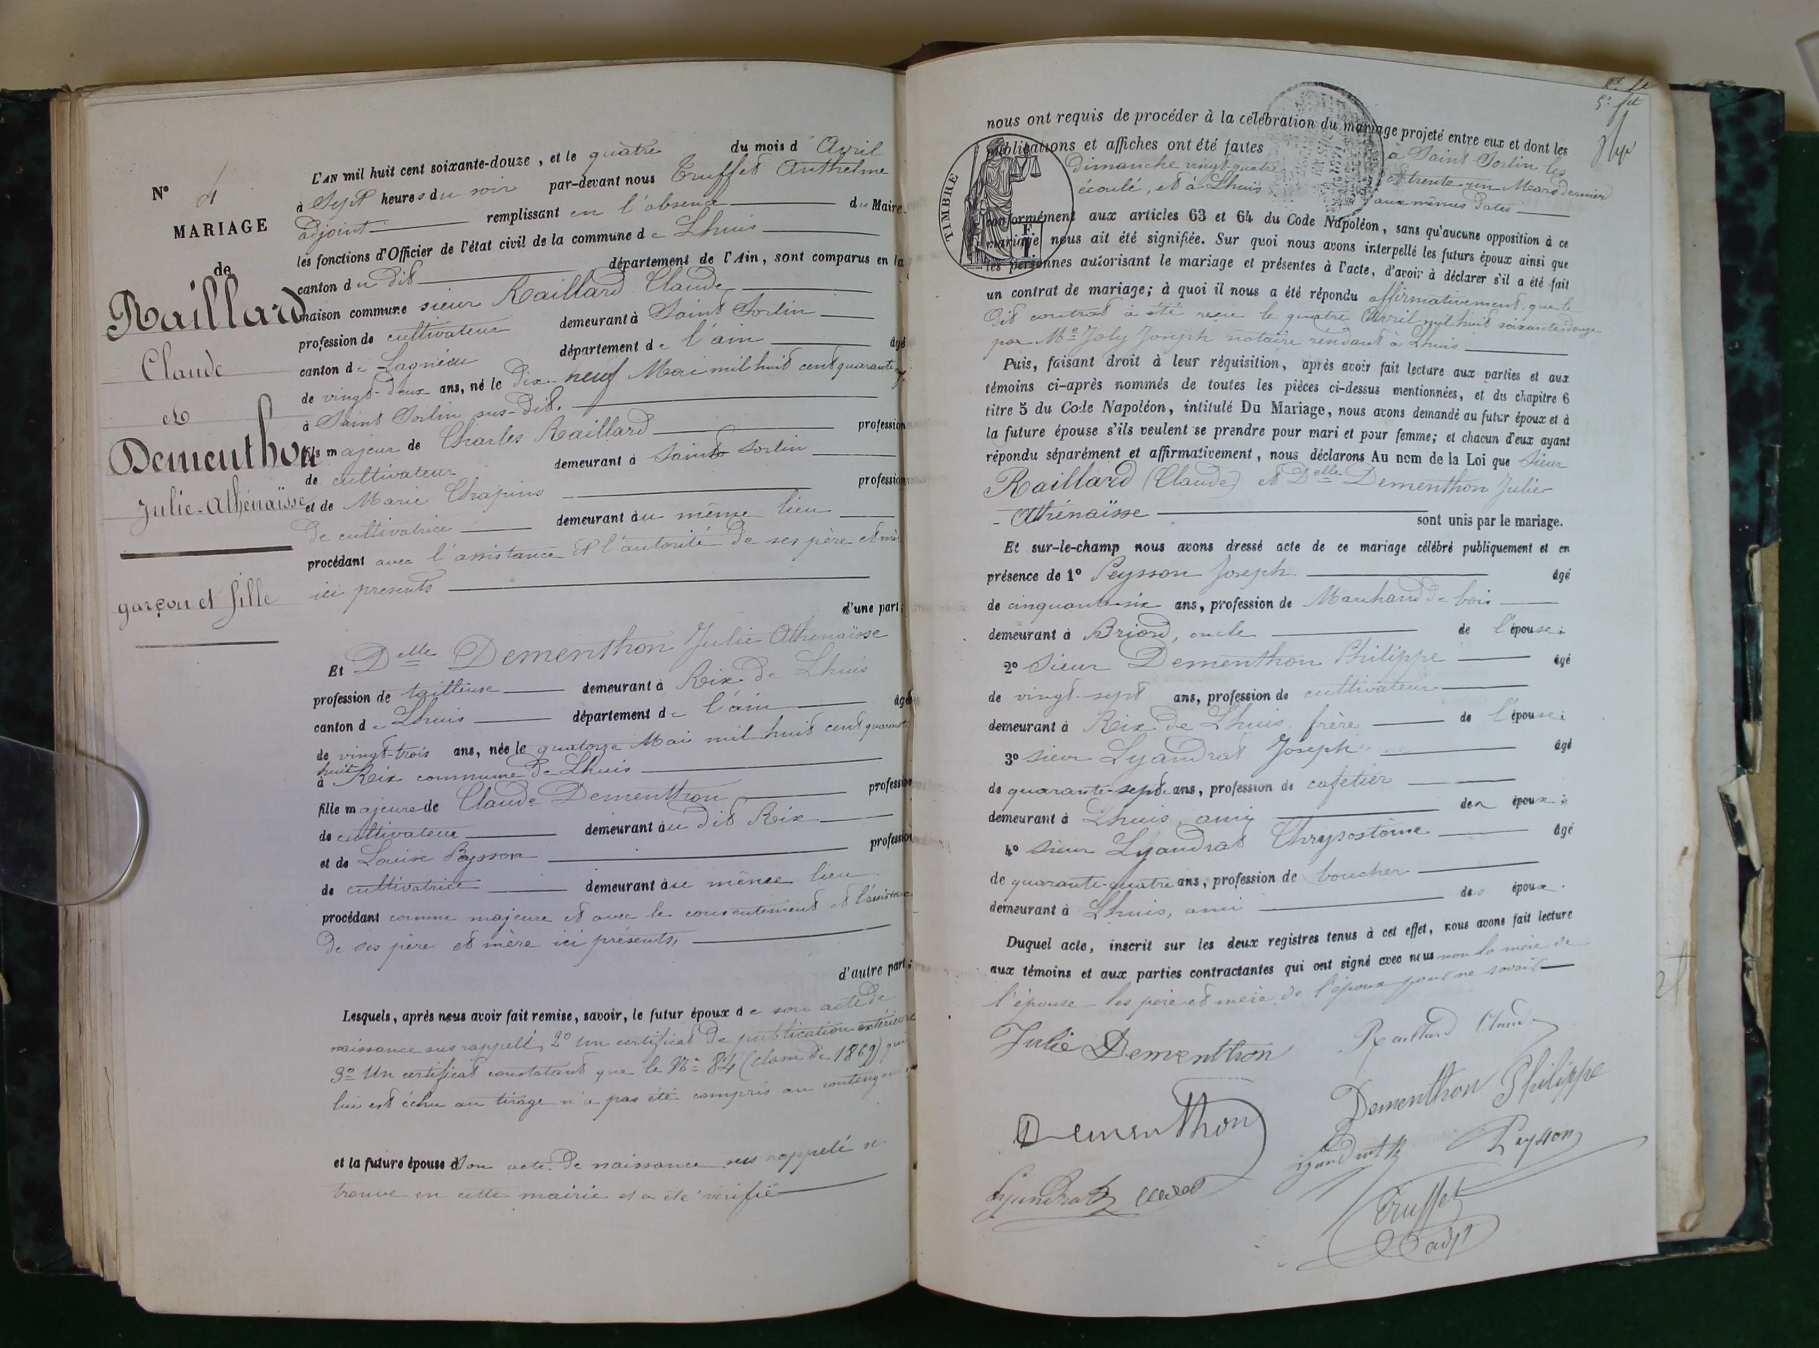 N° 4
MARIAGE
de
Raillard
Claude
et
Dementhon
Julie-Athénaïsse
garçon et fille
L'AN mil huit cent soixante-douze, et le quatre du mois d'Avril
à Sept heures du soir par-devant nous Truffet Anthelme
adjoint remplissant en l'absence du Maire
les fonctions d'Officier de l'état civil de la commune de Lhuis
canton du dit département de l'Ain, sont comparus en la
maison commune sieur Raillard Claude
profession de cultivateur demeurant à Saint Sorlin
canton de Lagnieu département de l'ain âgé
de vingt-deux ans, né le dix-neuf Mai mil huit cent quarante
à Saint Sorlin sus-dit,
fils majeur de Charles Raillard profession
de cultivateur demeurant à Saint Sorlin
et de Marie Chapins profession
de cultivatrice demeurant au même lieu
procédant avec l'assistance et l'autorité de ses père et
ici présents
d'une part;
Et Delle Dementhon Julie Athénaïsse
profession de tailleuse demeurant à Rix de Lhuis
canton de Lhuis département de l'ain âgée
de vingt-trois ans, née le quatorze Mai mil huit cent quarante
huit
à Rix commune de Lhuis
fille majeure de Claude Dementhon profession
de cultivateur demeurant au dit Rix
et de Louise Peysson profession
de cultivatrice demeurant au même lieu
procédant comme majeure et avec le consentement et l'assistance
de ses père et mère ici présents,
d'autre part;
Lesquels, après nous avoir fait remise, savoir, le futur époux de son acte de
naissance sus rappelé, 2° un certificat de publication extérieure
3° Un certificat constatant que le N° 84 (classe de 1869) qui
lui est échu au tirage n'a pas été compris au contingent
et la future épouse son acte de naissance sus rappelé se
trouve en cette mairie et a été vérifié
nous ont requis de procéder à la célébration du mariage projeté entre eux et dont les
publications et affiches ont été faites à Saint Sorlin les
Dimanche vingt quatre et trente-un Mars dernier
écoulé, et à Lhuis aux mêmes dates
TIMBRE
F.
1.
conformément aux articles 63 et 64 du Code Napoléon, sans qu'aucune opposition à ce
mariage nous ait été signifiée. Sur quoi nous avons interpellé les futurs époux ainsi que
les personnes autorisant le mariage et présentes à l'acte, d'avoir à déclarer s'il a été fait
un contrat de mariage; à quoi il nous a été répondu affirmativement que le
dit contrat a été reçu le quatre Avril mil huit soixante-douze
par Me Joly Joseph notaire résidant à Lhuis
Puis, faisant droit à leur réquisition, après avoir fait lecture aux parties et aux
témoins ci-après nommés de toutes les pièces ci-dessus mentionnées, et du chapitre 6
titre 5 du Code Napoléon, intitulé Du Mariage, nous avons demandé au futur époux et à
la future épouse s'ils veulent se prendre pour mari et pour femme; et chacun d'eux ayant
répondu séparément et affirmativement, nous déclarons Au nom de la Loi que sieur
Raillard (Claude) et Delle Dementhon Julie-
- Athénaïsse sont unis par le mariage.
Et sur-le-champ nous avons dressé acte de ce mariage célébré publiquement et en
présence de 1° Peysson Joseph âgé
de cinquante-six ans, profession de Marchand de bois
demeurant à Briord, oncle de l'épouse;
2° sieur Dementhon Philippe âgé
de vingt-sept ans, profession de cultivateur
demeurant à Rix de Lhuis, frère de l'épouse;
3° sieur Lyandrat Joseph âgé
de quarante-sept ans, profession de cafetier
demeurant à Lhuis, ami des époux;
4° sieur Lyandrat Chrysostôme âgé
de quarante-quatre ans, profession de boucher
demeurant à Lhuis, ami des époux.
Duquel acte, inscrit sur les deux registres tenus à cet effet, nous avons fait lecture
aux témoins et aux parties contractantes qui ont signé avec nous non la mère de
l'épouse les père et mère de l'époux pour ne savoir
Julie Dementhon Raillard Claude
Dementhon Dementhon Philippe
Lyandrat Peysson
Lyandrat
Truffet
adjt